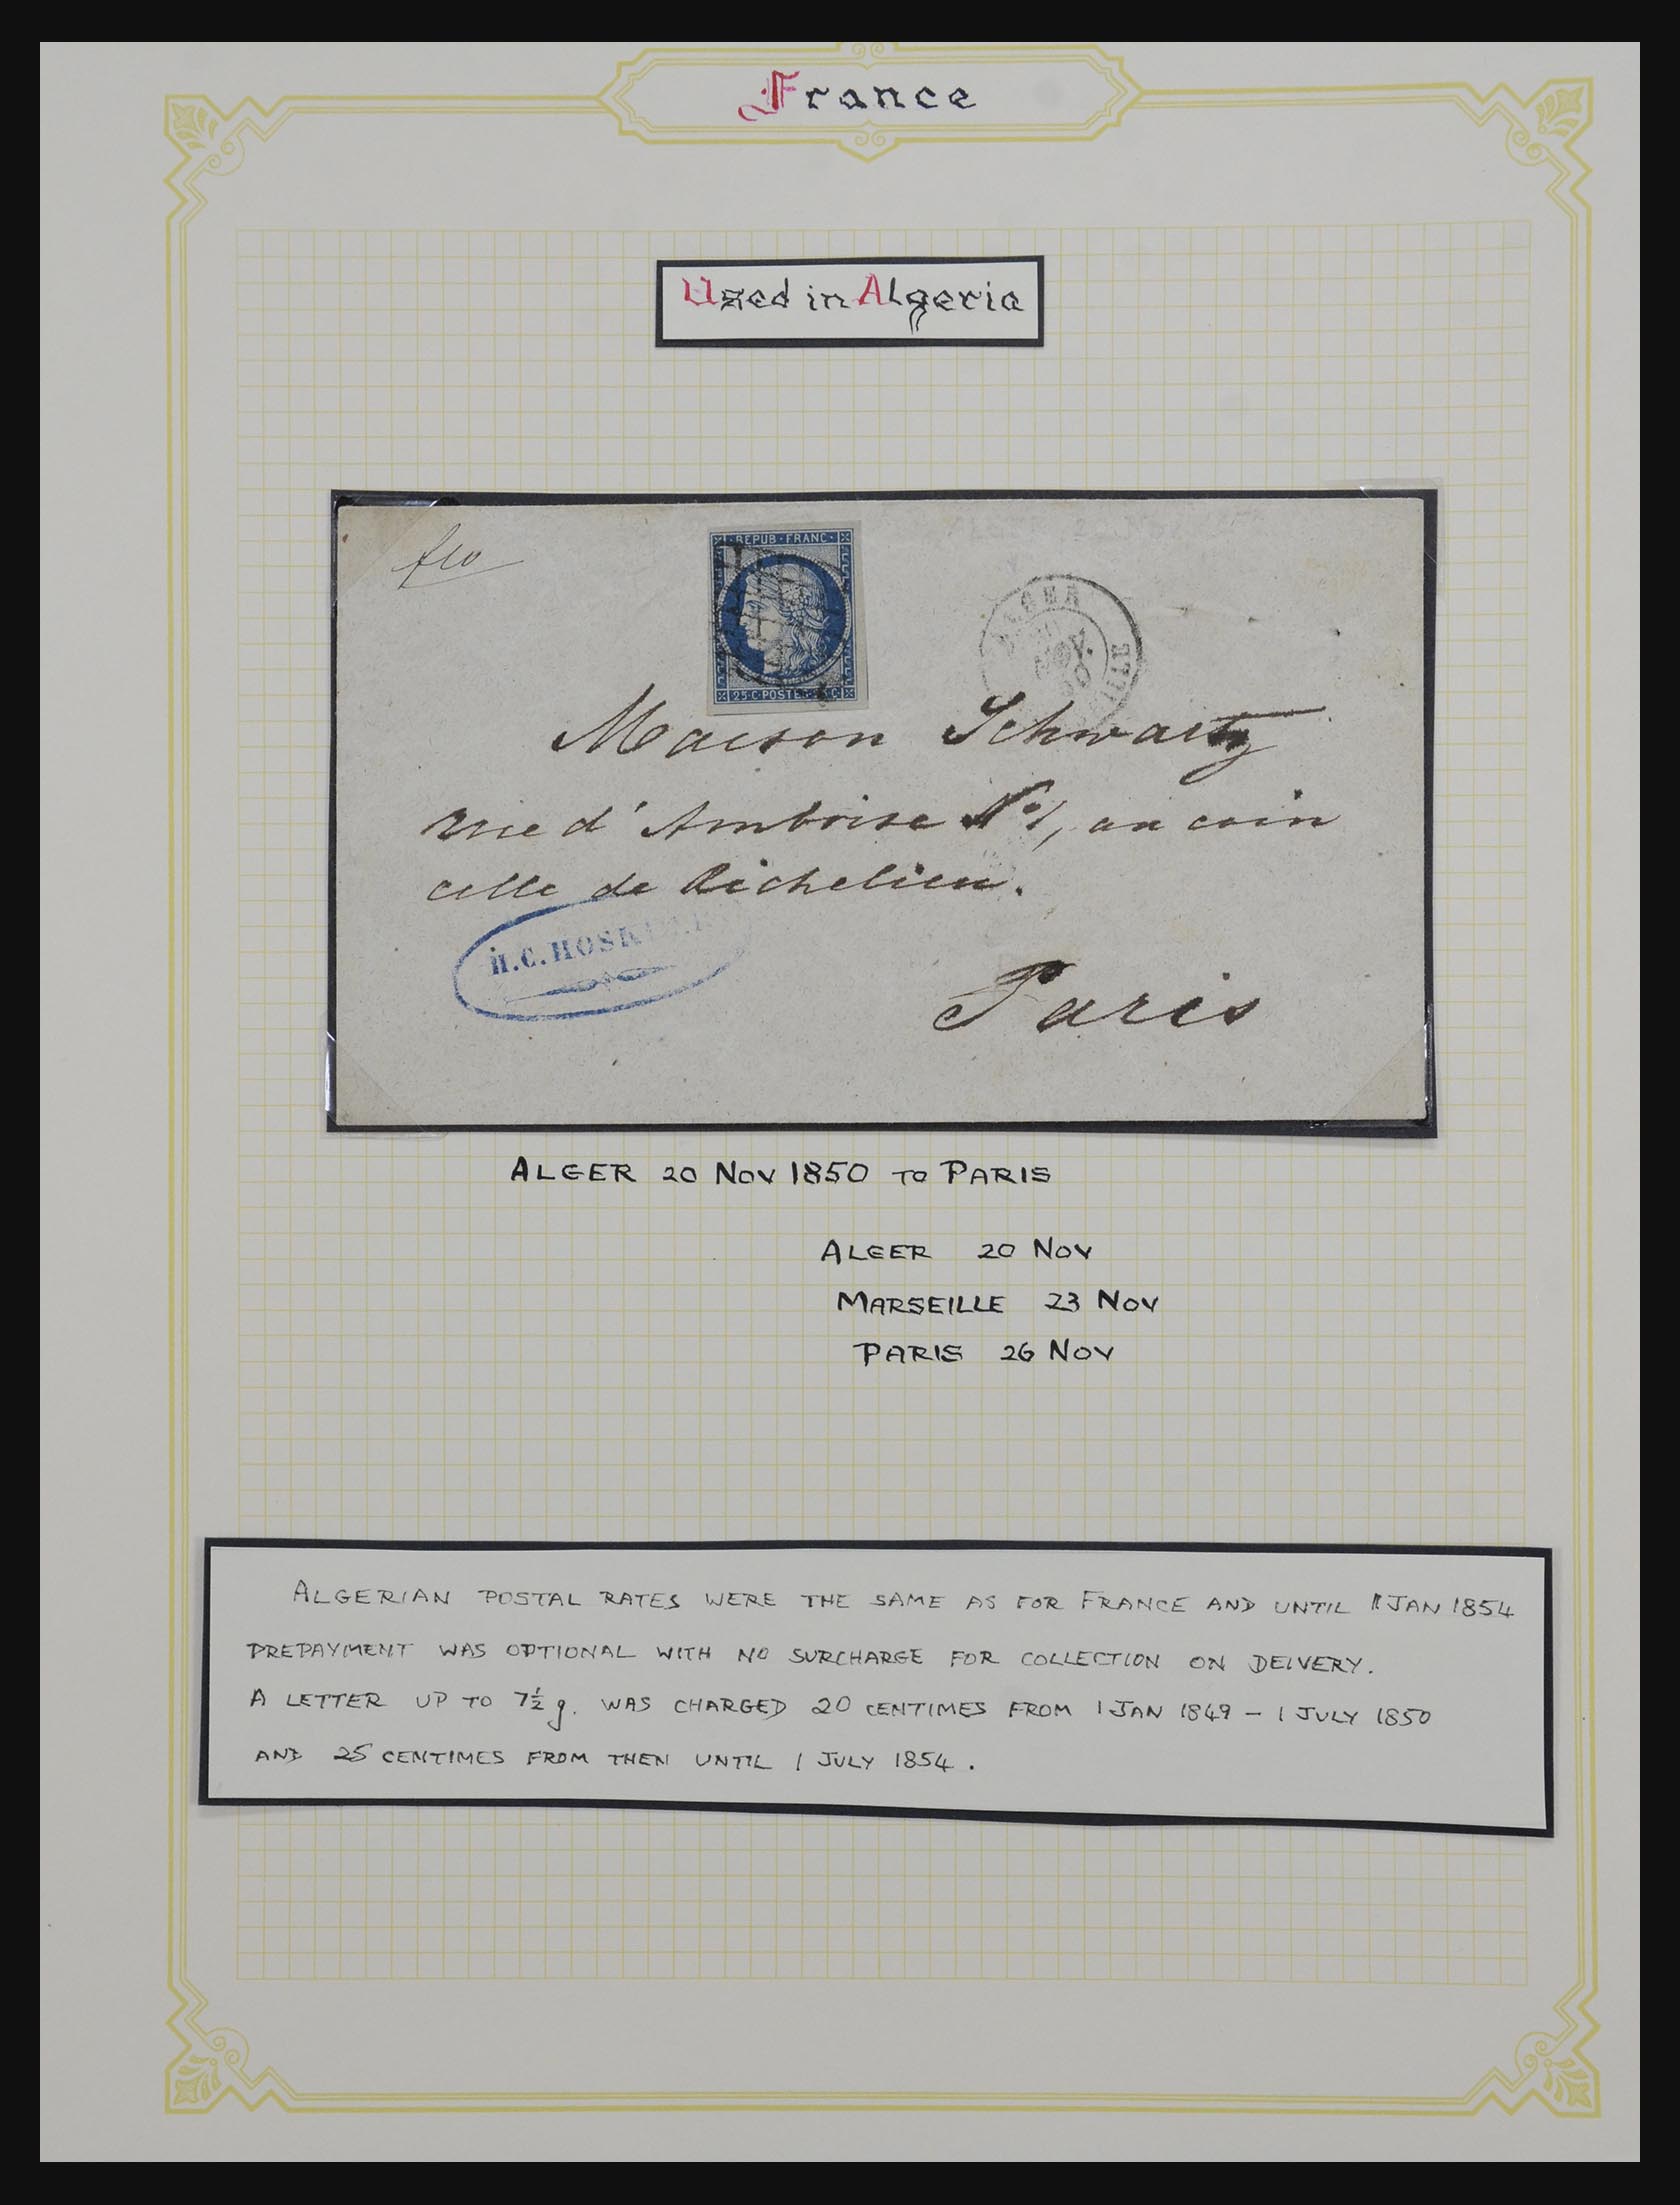 France
Used in Algeria
fco
REPUB·FRANC·
25·C·POSTE
ALGER
20
NOV.
50
Maison Schwartz
rue d'Amboise No 1, au coin
celle de Richelieu.
H.C.HOSK
Paris
ALGER 20 NOV 1850 TO PARIS
ALGER 20 NOV
MARSEILLE 23 NOV
PARIS 26 NOV
ALGERIAN POSTAL RATES WERE THE SAME AS FOR FRANCE AND UNTIL 1 JAN 1854
PREPAYMENT WAS OPTIONAL WITH NO SURCHARGE FOR COLLECTION ON DEIVERY.
A LETTER UP TO 7½ g. WAS CHARGED 20 CENTIMES FROM 1 JAN 1849 – 1 JULY 1850
AND 25 CENTIMES FROM THEN UNTIL 1 JULY 1854.